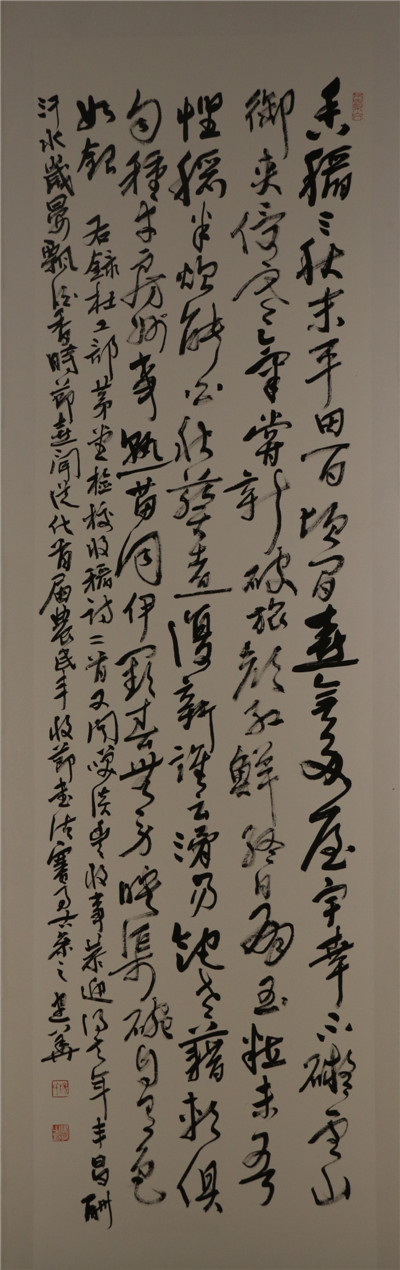 香稻三秋末平田百頃間喜無多屋宇幸不礙雲山
御夾侵寒氣嘗新破旅顏紅鮮終日有玉粒未吾
慳稻米炊能白秋葵煮復新誰云滑易飽老藉軟俱
勻種幸房州熟苗同伊闕春無勞映渠碗自有色
如銀 右錄杜工部茅堂檢校收稻詩二首又聞收事年丰昌酬
汗水歲晏飄酒香時節喜聞首届農民丰收節書法賽